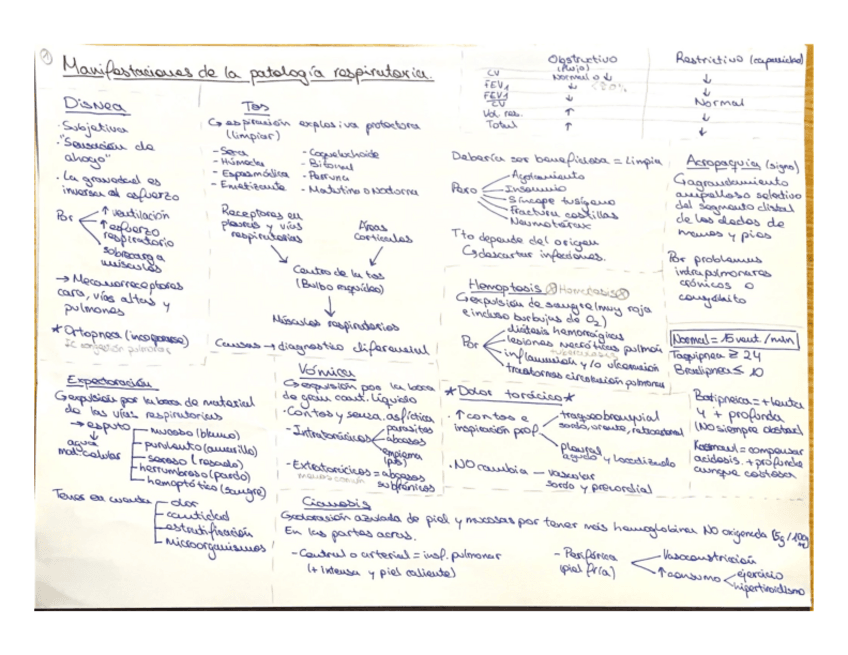 ①
Manifestaciones de la patología respiratoria.
Obstructivo
(flujo)
Restrictivo (capacidad)
CV Normal o ↓ ↓
FEV₁ ↓ <80% ↓
FEV₁/CV ↓ Normal
Vol res. ↑ ↓
Total ↑ ↓
Disnea
· Subjetiva
· "Sensación de
ahogo"
· La gravedad es
inversa al esfuerzo
Por ↑ ventilación
↑ esfuerzo
respiratorio
sobrecarga
músculos
→ Mecanorreceptores
cara, vías altas y
pulmones
* Ortopnea (incorporarse)
IC congestión pulmonar
Tos
↳ espiración explosiva protectora
(limpiar)
- Seca
- Húmeda
- Espasmódica
- Emetizante
- Coqueluchoide
- Bitonal
- Perruna
- Matutina o Nocturna
Receptores en
pleuras y vías
respiratorias
Áreas
corticales
Centro de la tos
(Bulbo raquídeo)
Músculos respiratorios
Causas → diagnostico diferencial
Debería ser beneficiosa = Limpia
Pero Agotamiento
Insomnio
Síncope tusígeno
Fractura costillas
Neumotórax
Tto depende del origen
↳ descartar infecciones.
Acropaquía (signo)
↳ agrandamiento
ampolloso selectivo
del segmento distal
de los dedos de
manos y pies
Por problemas
intrapulmonares
crónicos o
congénito
Hemoptosis
↳ expulsión de sangre (muy roja
e incluso burbujas de O₂)
Por diátesis hemorrágicas
lesiones necróticas pulmón
tuberculosis
inflamación y/o ulceración
trastornos circulación pulmonar
Normal = 15 vent./min
Taquipnea ≥ 24
Bradipnea ≤ 10
Batipneica = + lenta
y + profunda
(NO siempre
Kussmaul = compensar
acidosis. + profunda
aunque costosa
Expectoración
↳ expulsión por la boca de material
de las vías respiratorias
→ esputo
mucoso (blanco)
purulento (amarillo)
seroso (rosado)
herrumbroso (pardo)
hemoptótico (sangre)
Tener en cuenta olor
cantidad
estratificación
microorganismos
Vómica
↳ expulsión por la boca
de gran cant. líquido
· Con tos y sensa. asfíctica
- Intratorácicos parásitos
abscesos
empiema
(pus)
- Extratorácicos = abscesos
menos común subfrénicos
* Dolor torácico *
· ↑ con tos e
inspiración prof. traqueobronquial
sordo, urente, retroesternal
pleural
agudo y localizado
· NO cambia — vascular
sordo y precordial
Cianosis
↳ coloración azulada de piel y mucosas por tener más hemoglobina NO oxigenada (5g/100g
En las partes acras.
- Central o arterial = insf. pulmonar
(+ intensa y piel caliente)
- Periférica
(piel fría)
Vasoconstricción
↑ consumo ejercicio
hipertiroidismo